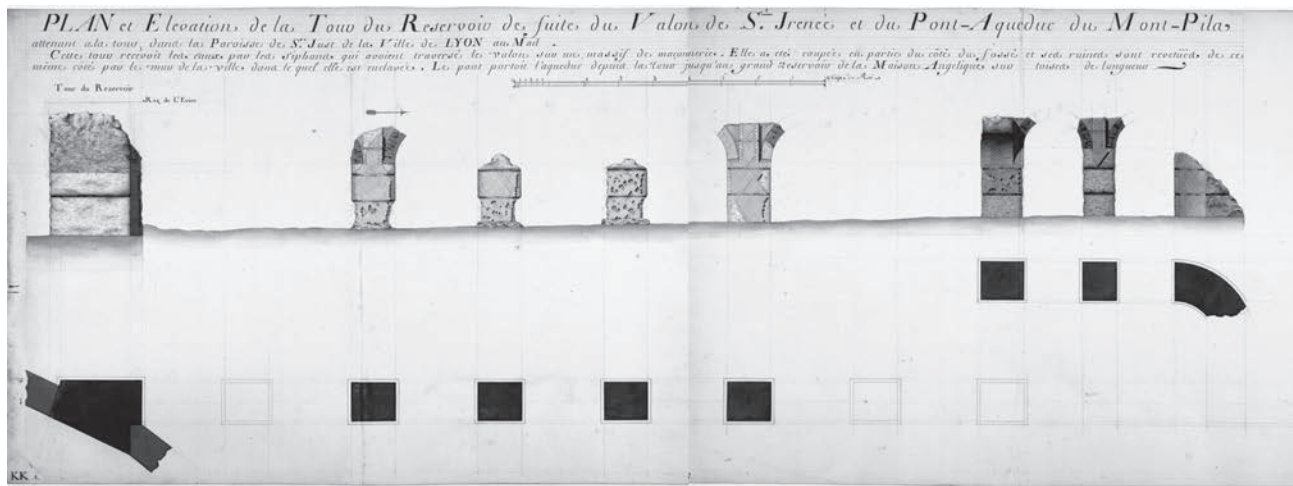 PLAN et Elevation de la Tour du Reservoir de suite du Valon de St. Irenée et du Pont-Aqueduc du Mont-Pila
attenant a la tour, dans la Paroisse de St. Just de la Ville de LYON au Mail.
Cette tour recevoit les eaux par les siphons qui avoient traversé le valon sur un massif de maçonnerie. Elle a eté coupée en partie du côté du fossé et ses ruines sont revetües de ce
même coté par le mur de la ville dans le quel elle est enclavée. Le pont portoit l'aqueduc depuis la tour jusqu'au grand Reservoir de la Maison Angelique sur toises de longueur
Tour du Reservoir
KK